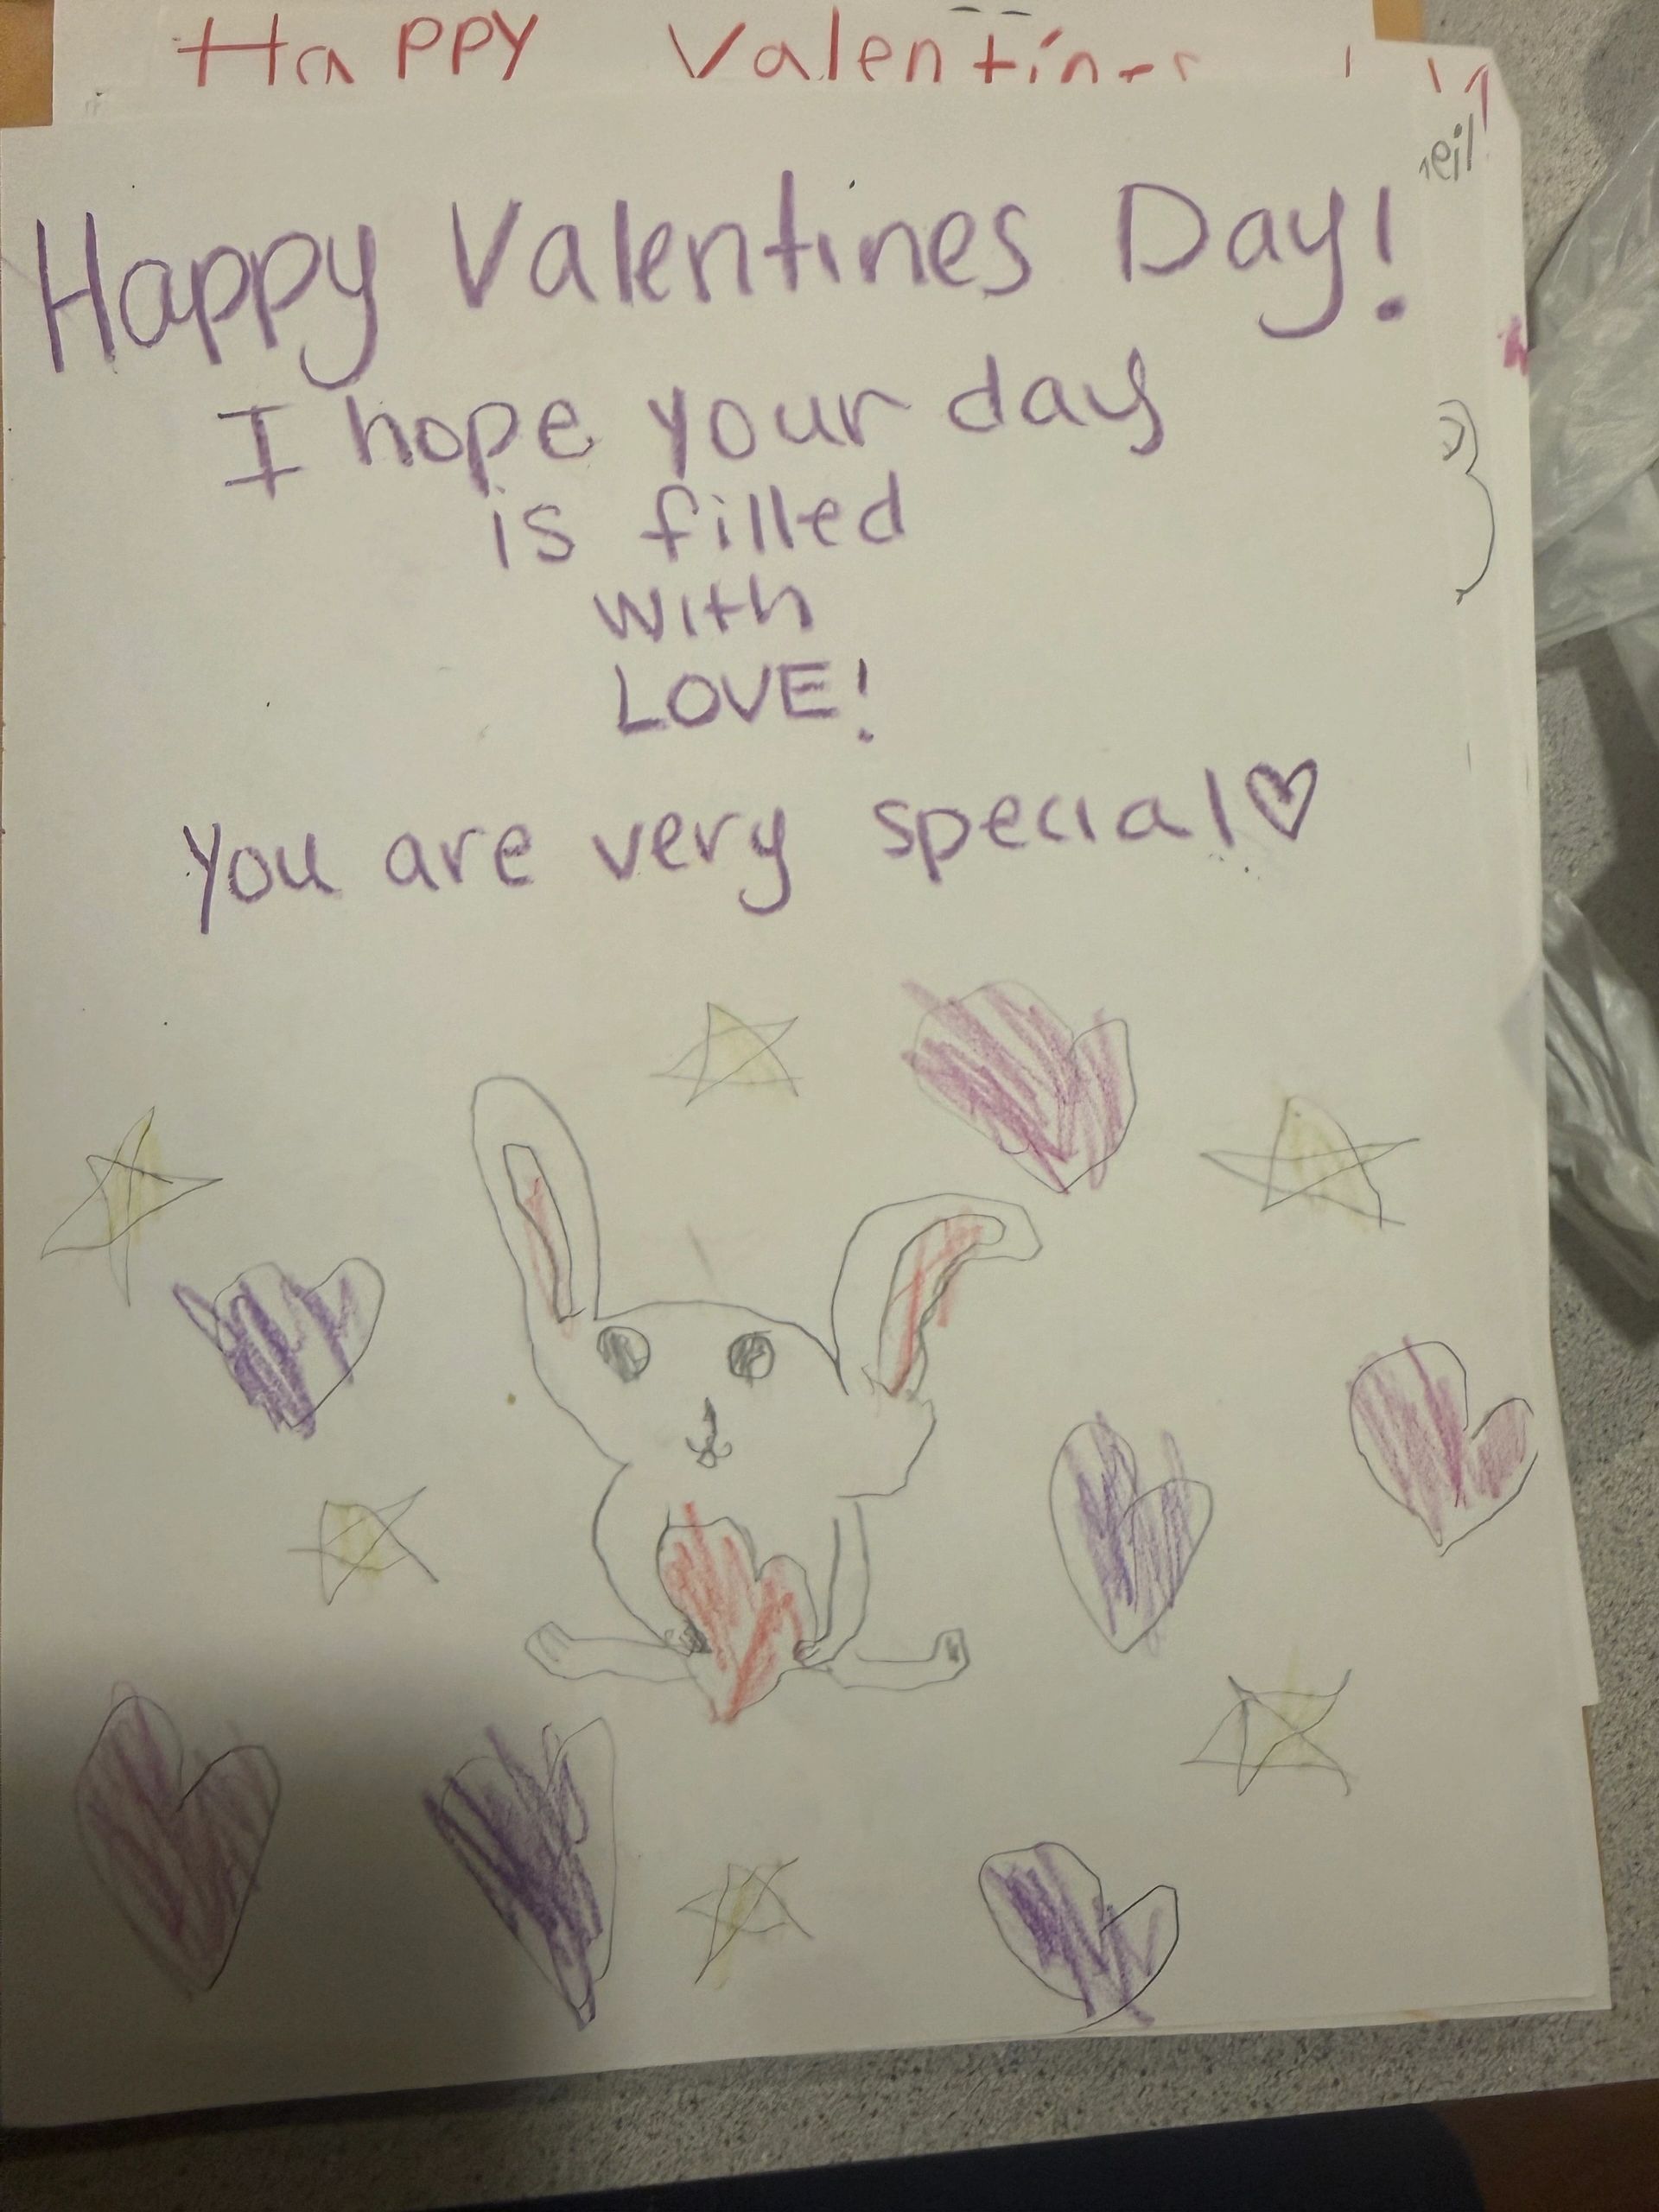 Happy Valentin
Happy Valentines Day!
I hope your day
is filled
with
LOVE!
you are very special♡